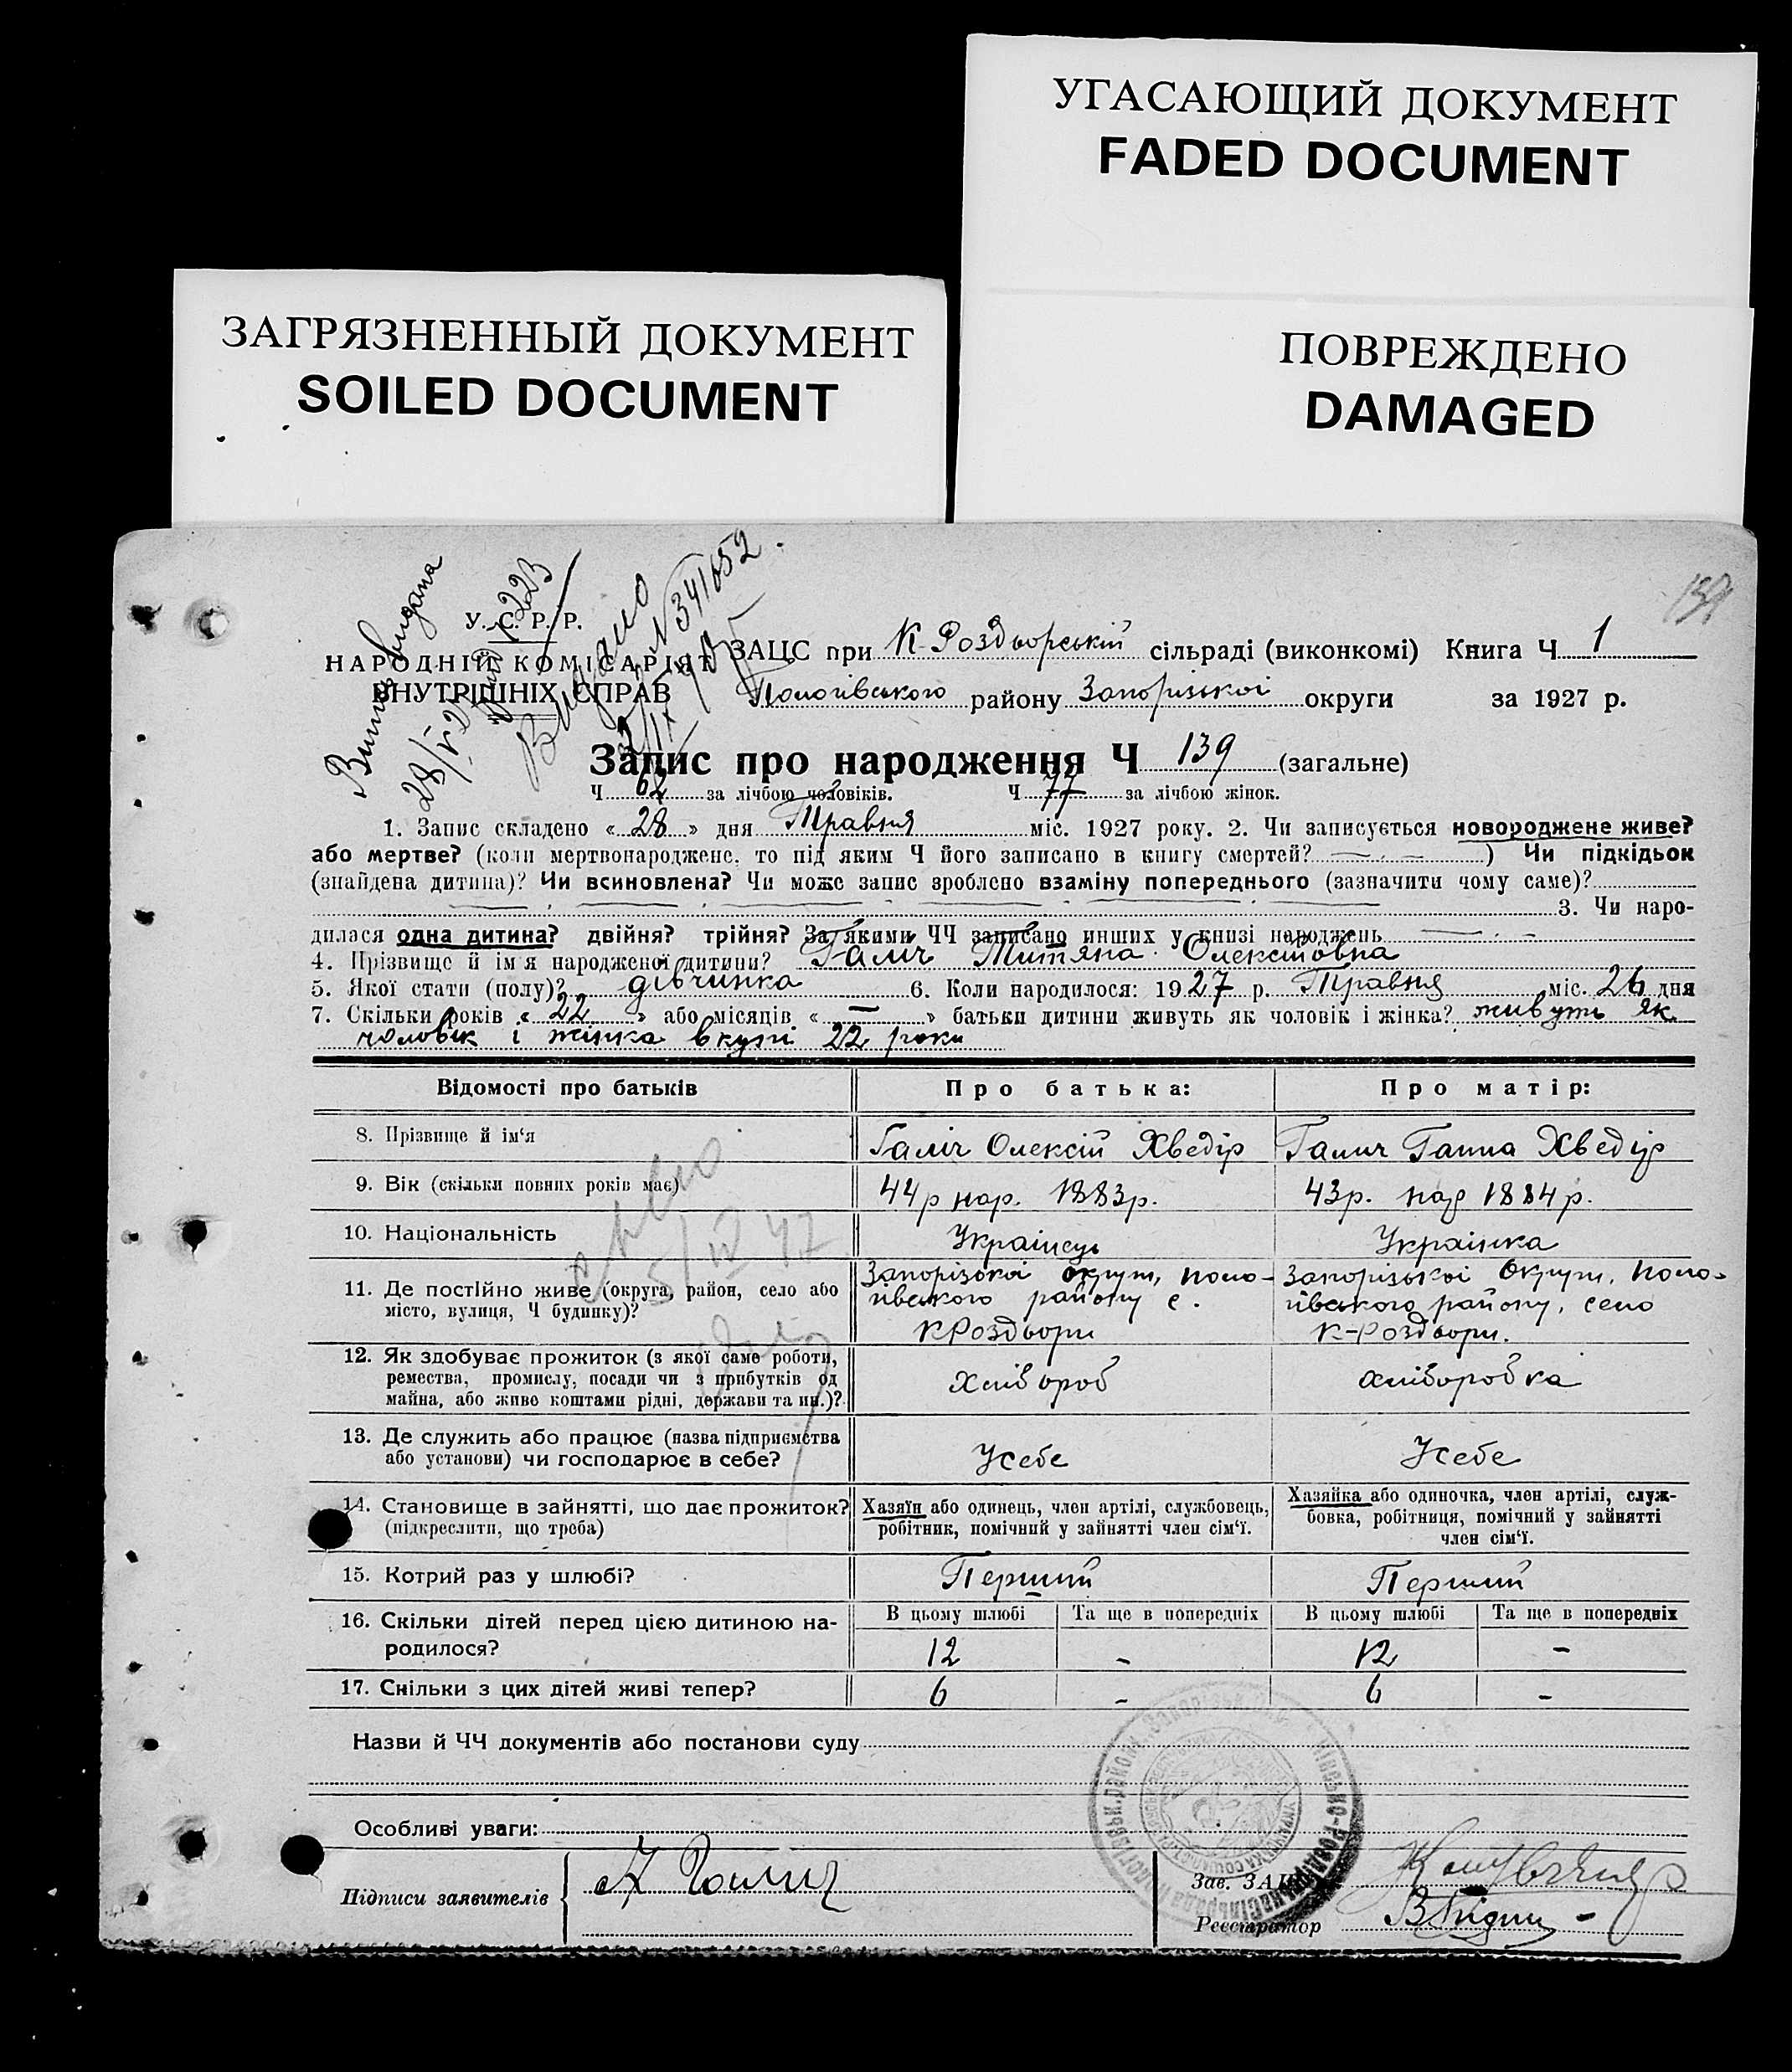 УГАСАЮЩИЙ ДОКУМЕНТ
FADED DOCUMENT
ЗАГРЯЗНЕННЫЙ ДОКУМЕНТ
SOILED DOCUMENT
ПОВРЕЖДЕНО
DAMAGED
Витяг видана
28/V 27
Видано
N 341652
139
У. С. Р. Р.
НАРОДНІЙ КОМІСАРІЯТ
ВНУТРІШНІХ СПРАВ
ЗАЦС при К-Роздорській сільраді (виконкомі) Книга Ч 1
Пологівського району Запорізької округи за 1927 р.
Запис про народження Ч 139 (загальне)
Ч 62 за лічбою чоловіків. Ч 77 за лічбою жінок.
1. Запис складено « 28 » дня Травня міс. 1927 року. 2. Чи записується новороджене живе?
або мертве? (коли мертвонароджене, то під яким Ч його записано в книгу смертей? — . — ) Чи підкідьок
(знайдена дитина)? Чи всиновлена? Чи може запис зроблено взаміну попереднього (зазначити чому саме)?
3. Чи наро-
дилася одна дитина? двійня? трійня? За якими ЧЧ записано инших у книзі народжень
4. Прізвище й ім'я народженої дитини? Галіч Титяна Олексіовна
5. Якої стати (полу)? дівчинка 6. Коли народилося: 1927 р. Травня міс. 26 дня
7. Скільки років « 22 » або місяців « — » батьки дитини живуть як чоловік і жінка? живуть як
чоловік і жінка вкупі 22 роки
Відомості про батьків Про батька: Про матір:
8. Прізвище й ім'я Галіч Олексій Хведір Галич Ганна Хведір
9. Вік (скільки повних років має) 44р нар. 1883р. 43р. нар 1884р.
10. Національність Українець Українка
11. Де постійно живе (округа, район, село або місто, вулиця, Ч будинку)?
Запорізької округи, Поло-
гівського району с.
КРоздори
Запорізької Округи, Поло-
гівського району, село
К-роздори.
12. Як здобуває прожиток (з якої саме роботи,
ремества, промислу, посади чи з прибутків од
майна, або живе коштами рідні, держави та ин.)?
Хлібороб хліборобка
13. Де служить або працює (назва підприємства
або установи) чи господарює в себе?
Усебе Усебе
14. Становище в зайнятті, що дає прожиток?
(підкреслити, що треба)
Хазяїн або одинець, член артілі, службовець,
робітник, помічний у зайнятті член сім'ї.
Хазяйка або одиночка, член артілі, служ-
бовка, робітниця, помічний у зайнятті
член сім'ї.
15. Котрий раз у шлюбі? Перший Перший
16. Скільки дітей перед цією дитиною на-
родилося?
В цьому шлюбі Та ще в попередніх В цьому шлюбі Та ще в попередніх
12 - 12 -
17. Скільки з цих дітей живі тепер? 6 - 6 -
Назви й ЧЧ документів або постанови суду
Особливі уваги:
Підписи заявителів А Галич
Зав. ЗАЦС
Реєстратор